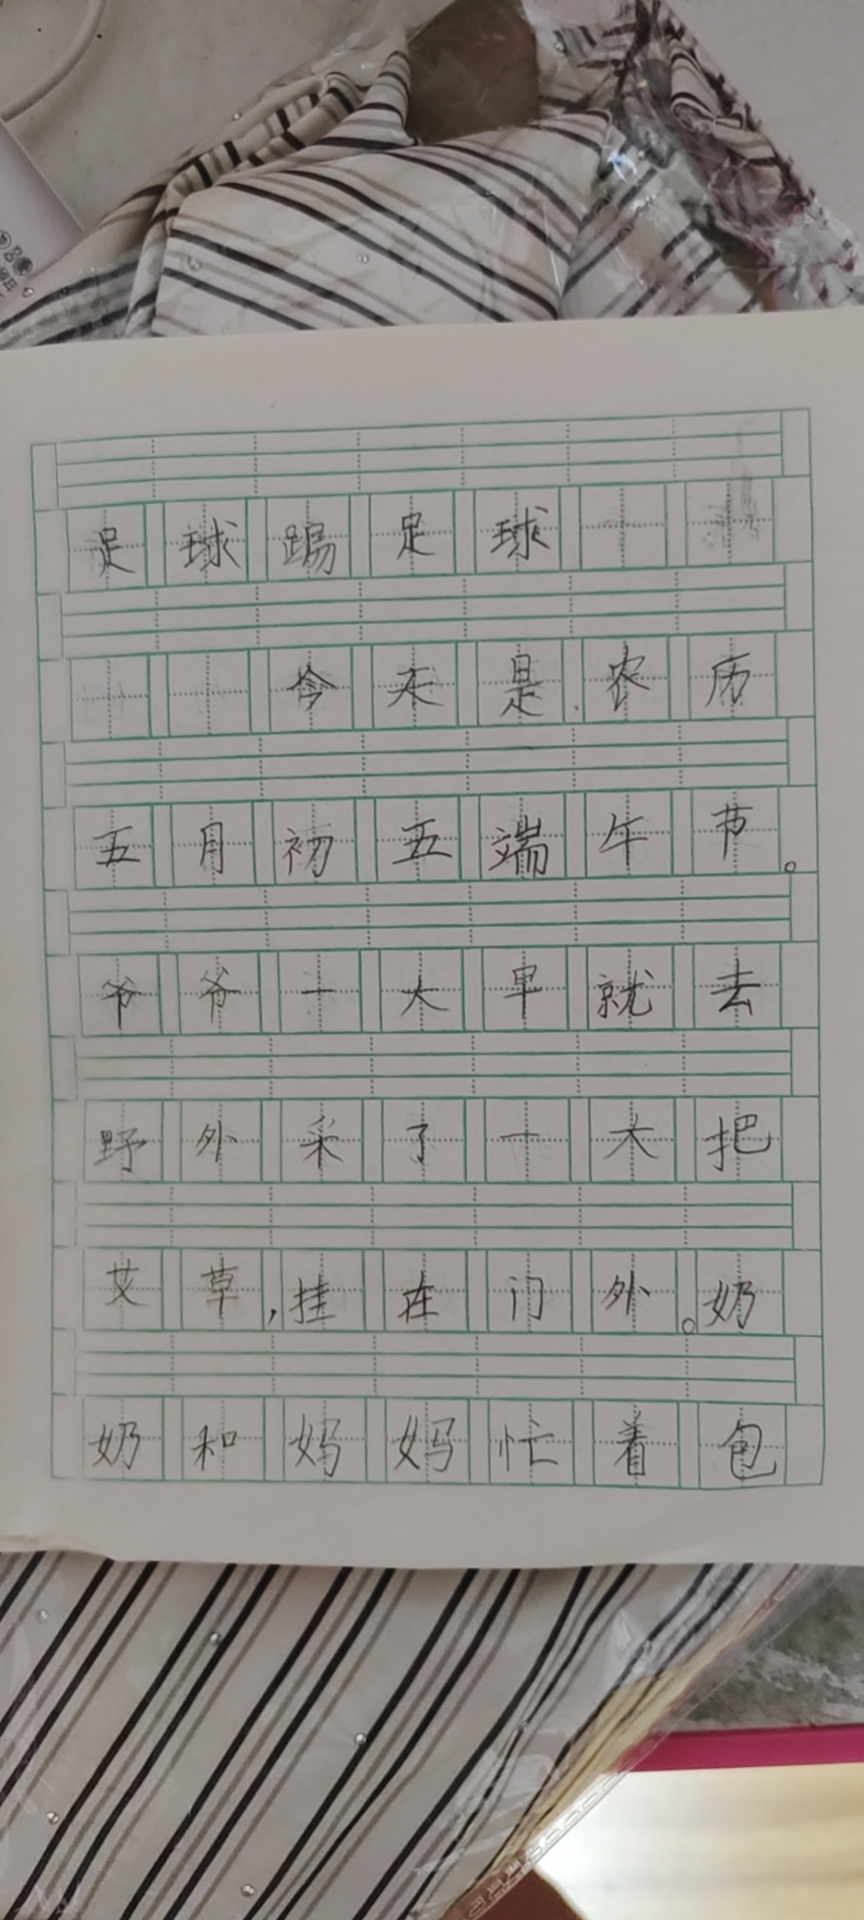 足球踢足球
今天是农历
五月初五端午节。
爷爷一大早就去
野外采了一大把
艾草,挂在门外。奶
奶和妈妈忙着包